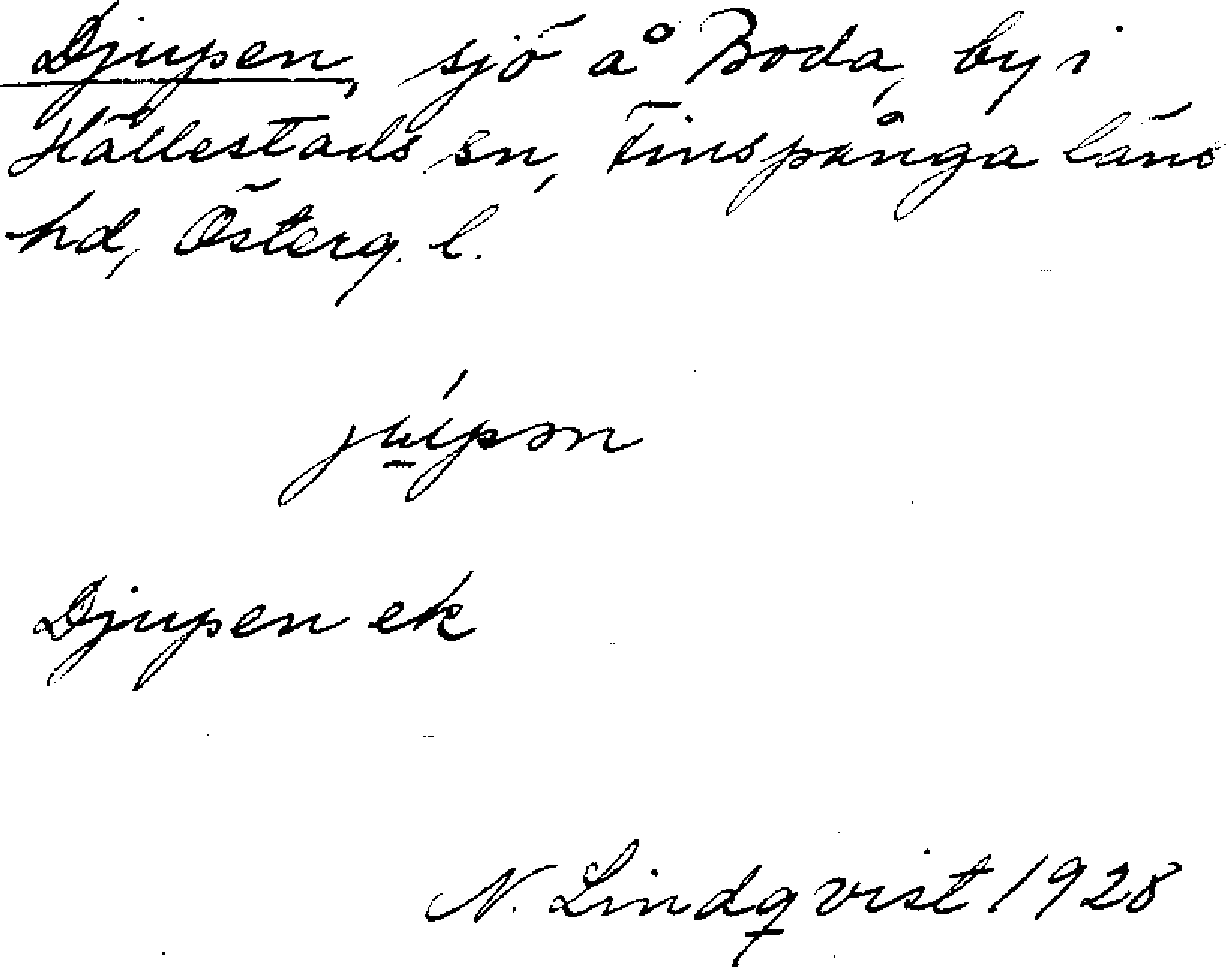 Djupen, sjö å Boda, by i
Hällestads sn, Finspånga läns
hd, Österg. l.
jú̱pən
Djupen ek
N. Lindqvist 1928